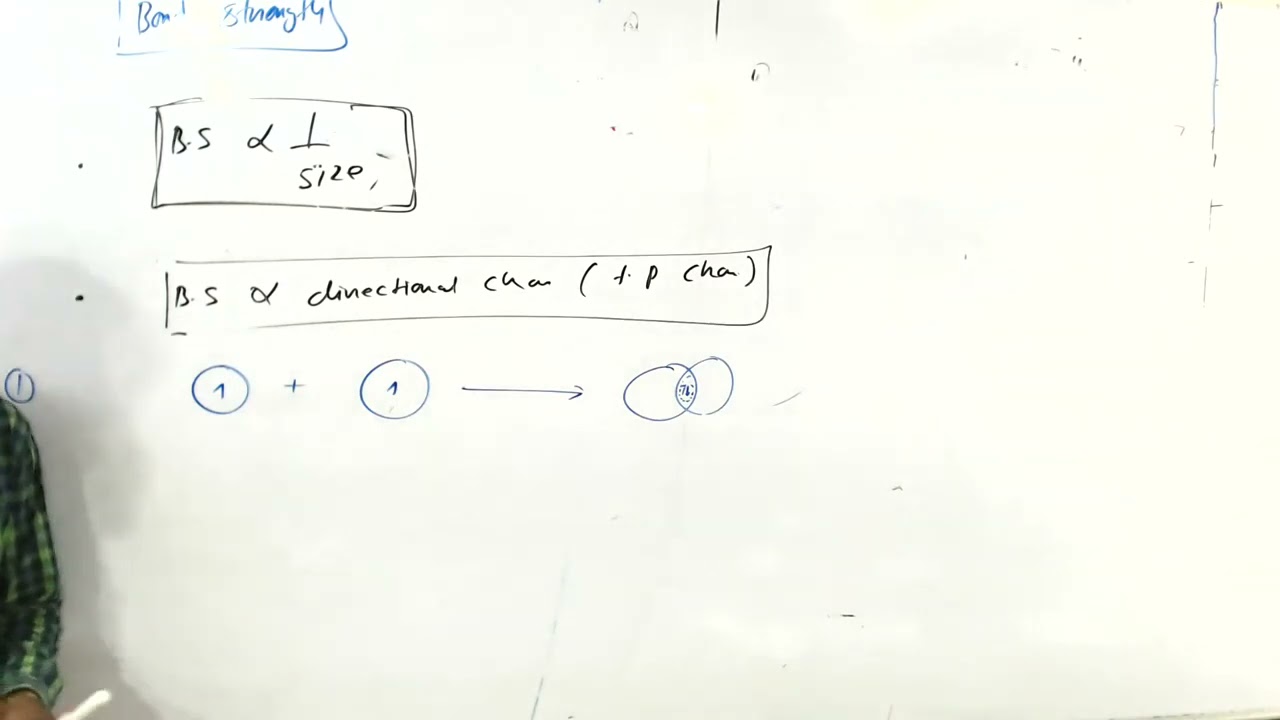 Bond Strength
B.S ∝ 1
size,
B.S ∝ directional char ( %. p char.)
① 1 + 1 ⟶ 1↓